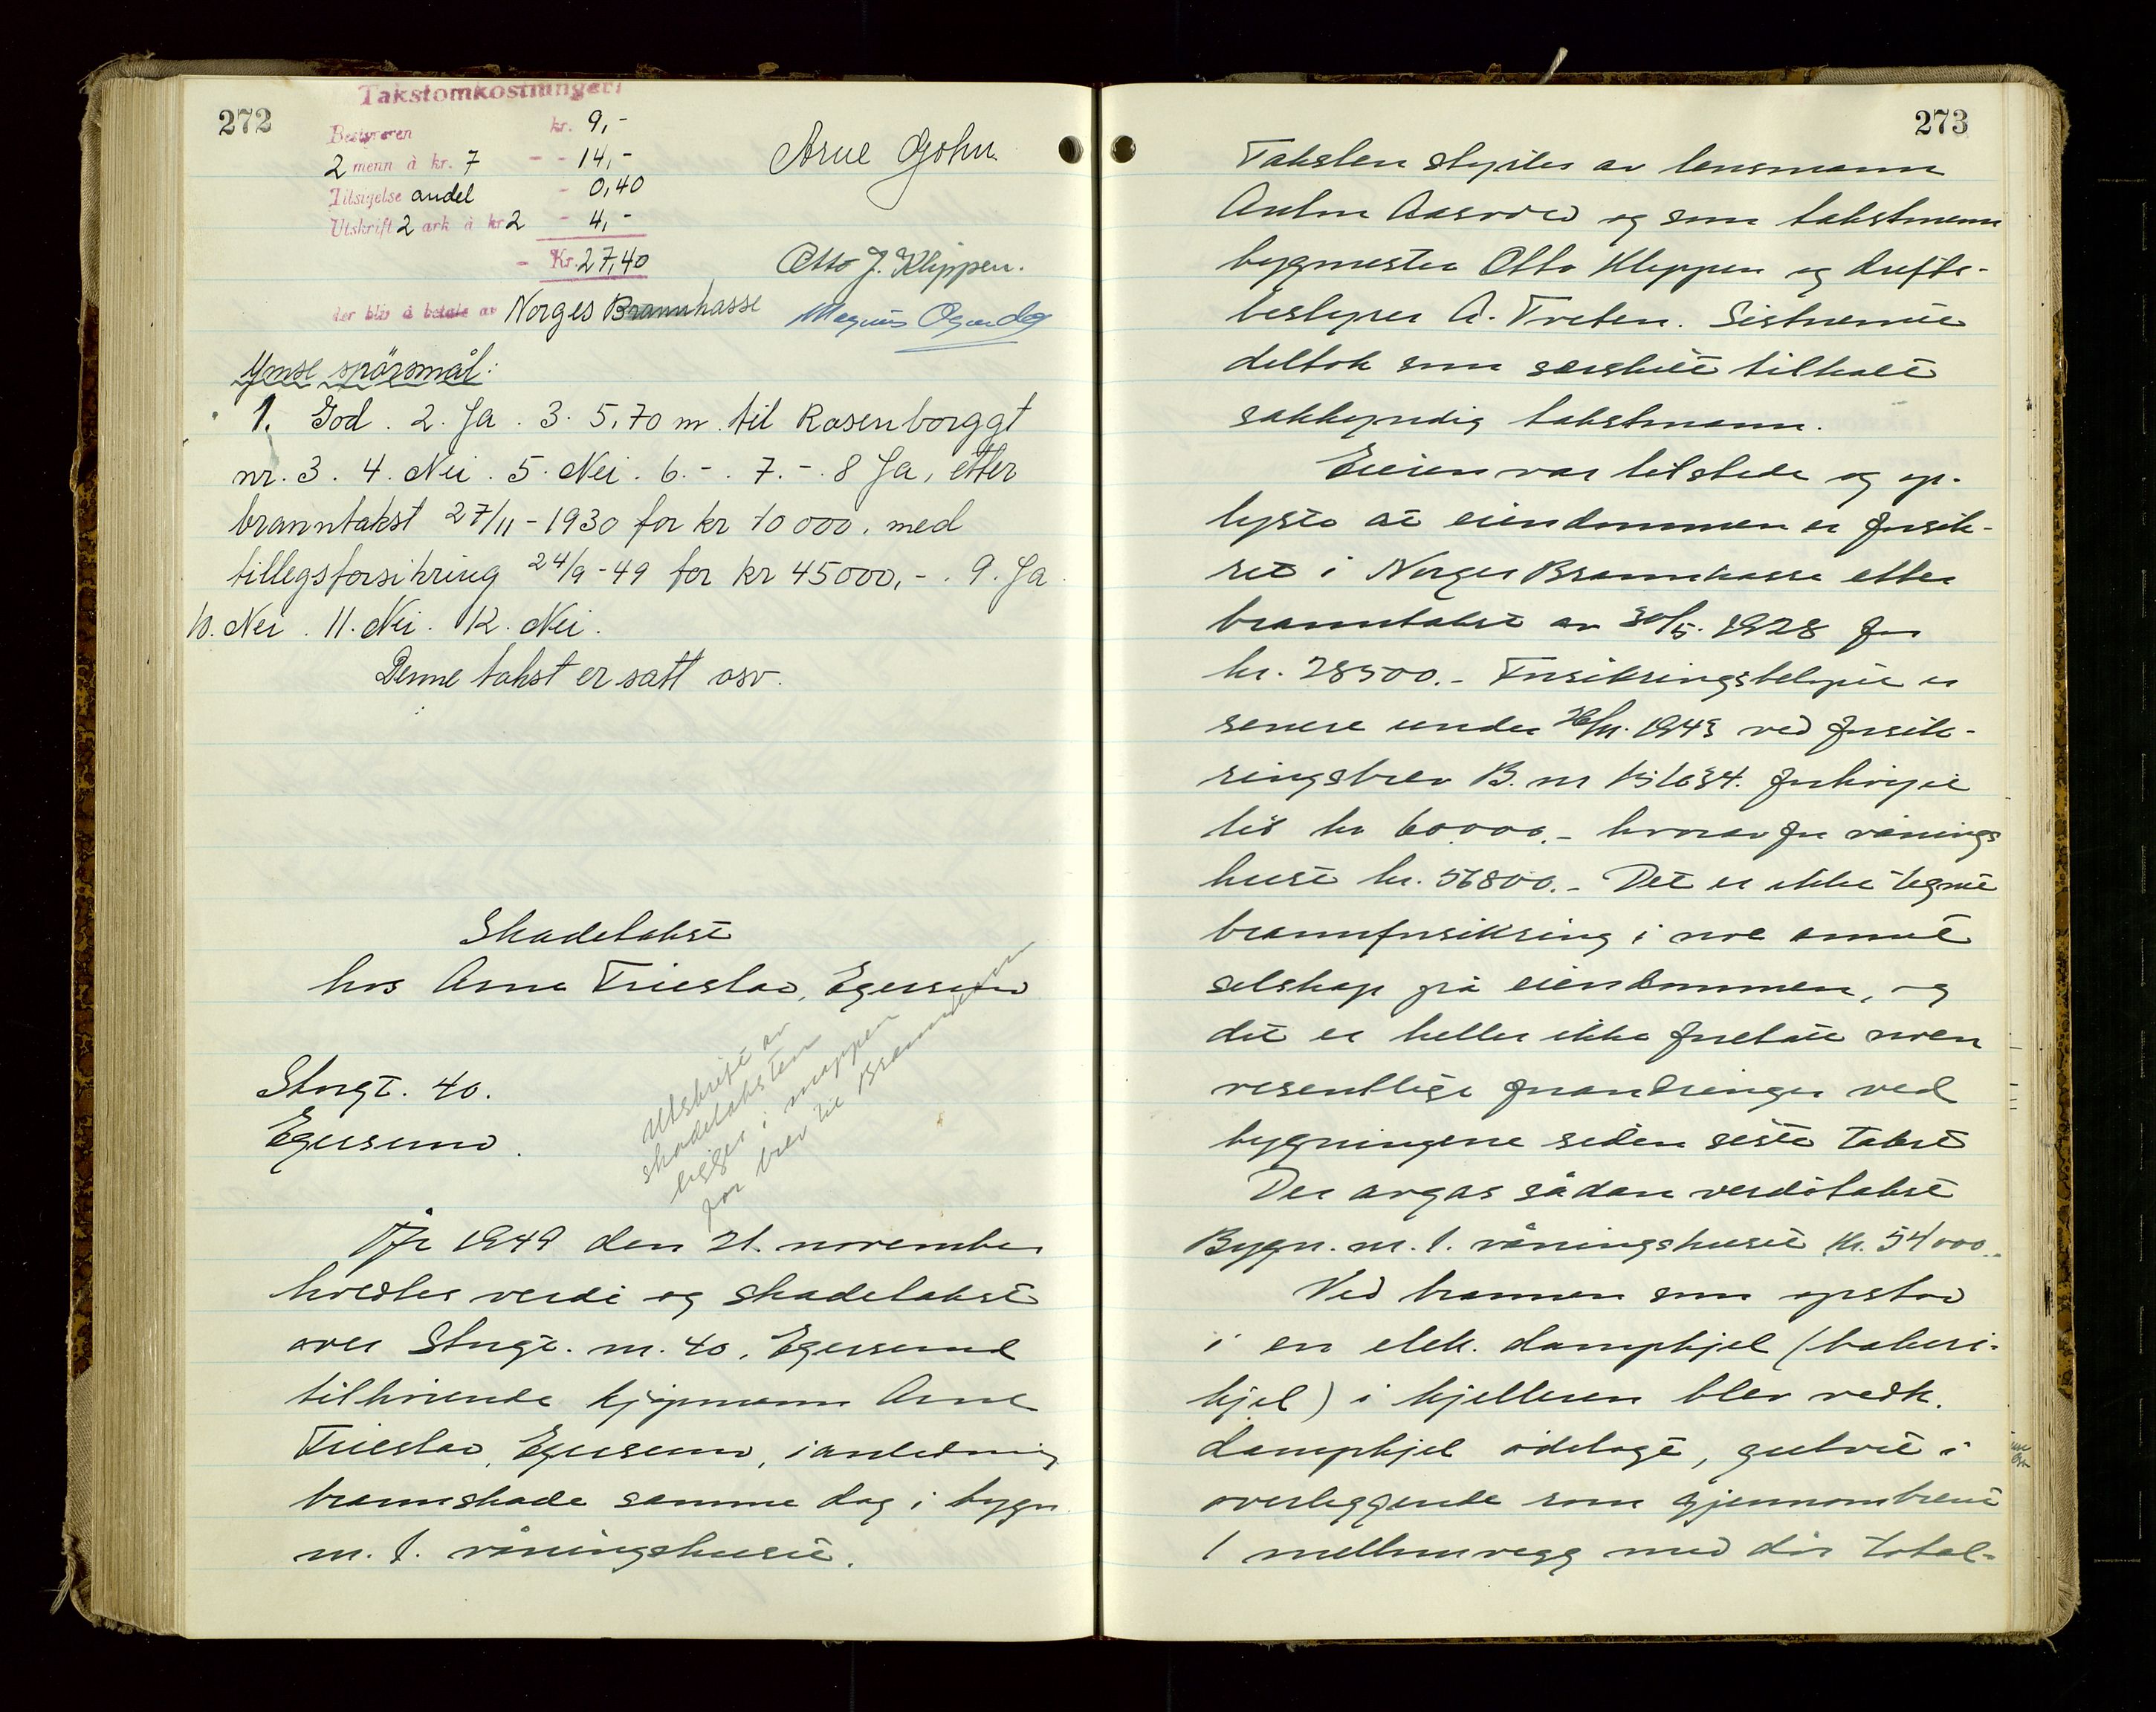 272
Takstomkostninger:
Bestyreren kr. 9,-
2 menn à kr. 7 - - 14,-
Tilsigelse andel - 0,40
Utskrift 2 ark à kr 2 - 4,-
- Kr. 27,40
der blir å betale av Norges Brannkasse
Arne Gohn.
Otto J. Kleppen.
Magnus
Ymse spörsmål:
1. God. 2. Ja. 3. 5,70 m. til Rosenborggt
nr. 3. 4. Nei. 5. Nei. 6. -. 7. -. 8 Ja, etter
branntakst 27/11-1930 for kr 10000, med
tillegsforsikring 24/9-49 for kr 45000,-. 9. Ja.
10. Nei. 11. Nei. 12. Nei.
Denne takst er satt osv.
Skadetakst
hos Arne Friestad, Egersund
Utskrift av
skadetaksten
ligger i mappen
for brev til Brannkassen
Storgt. 40.
Egersund.
År 1949 den 21. november
holdtes verdi og skadetakst
over Storgt. nr. 40, Egersund
tilhörende kjöpmann Arne
Friestad, Egersund, i anledning
brannskade samme dag i bygn.
nr. 1. våningshuset.
273
Taksten styrtes av lensmann
Anton Aasrod og som takstmenn
bygmester Otto Kleppen og drifts-
bestyrer A. Treten. Sistnevnte
deltok som særskilt tilkalt
sakkyndig takstmann.
Eieren var tilstede og op-
lyste at eiendommen er forsik-
ret i Norges Brannkasse etter
branntakst av 30/5. 1928 for
kr. 28500.- Forsikringsbelöpet er
senere under 26/11. 1943 ved forsik-
ringsbrev B. nr forhöyet
til kr 60000.- hvorav for vånings
huset kr. 56800.- Det er ikke tegnet
brannforsikring i noe annet
selskap på eiendommen, og
det er heller ikke foretatt noen
vesentlige forandringer ved
bygningene siden siste takst
Der avgas sådan verditakst
Bygn. nr. 1. våningshuset kr. 54000.-
Ved brannen som opstod
i en elek. dampkjel (bakeri-
kjel) i kjelleren blev vedk.
dampkjel ödelagt, gulvet i
overliggende rom gjennombrent
1 mellomvegg med dör total-